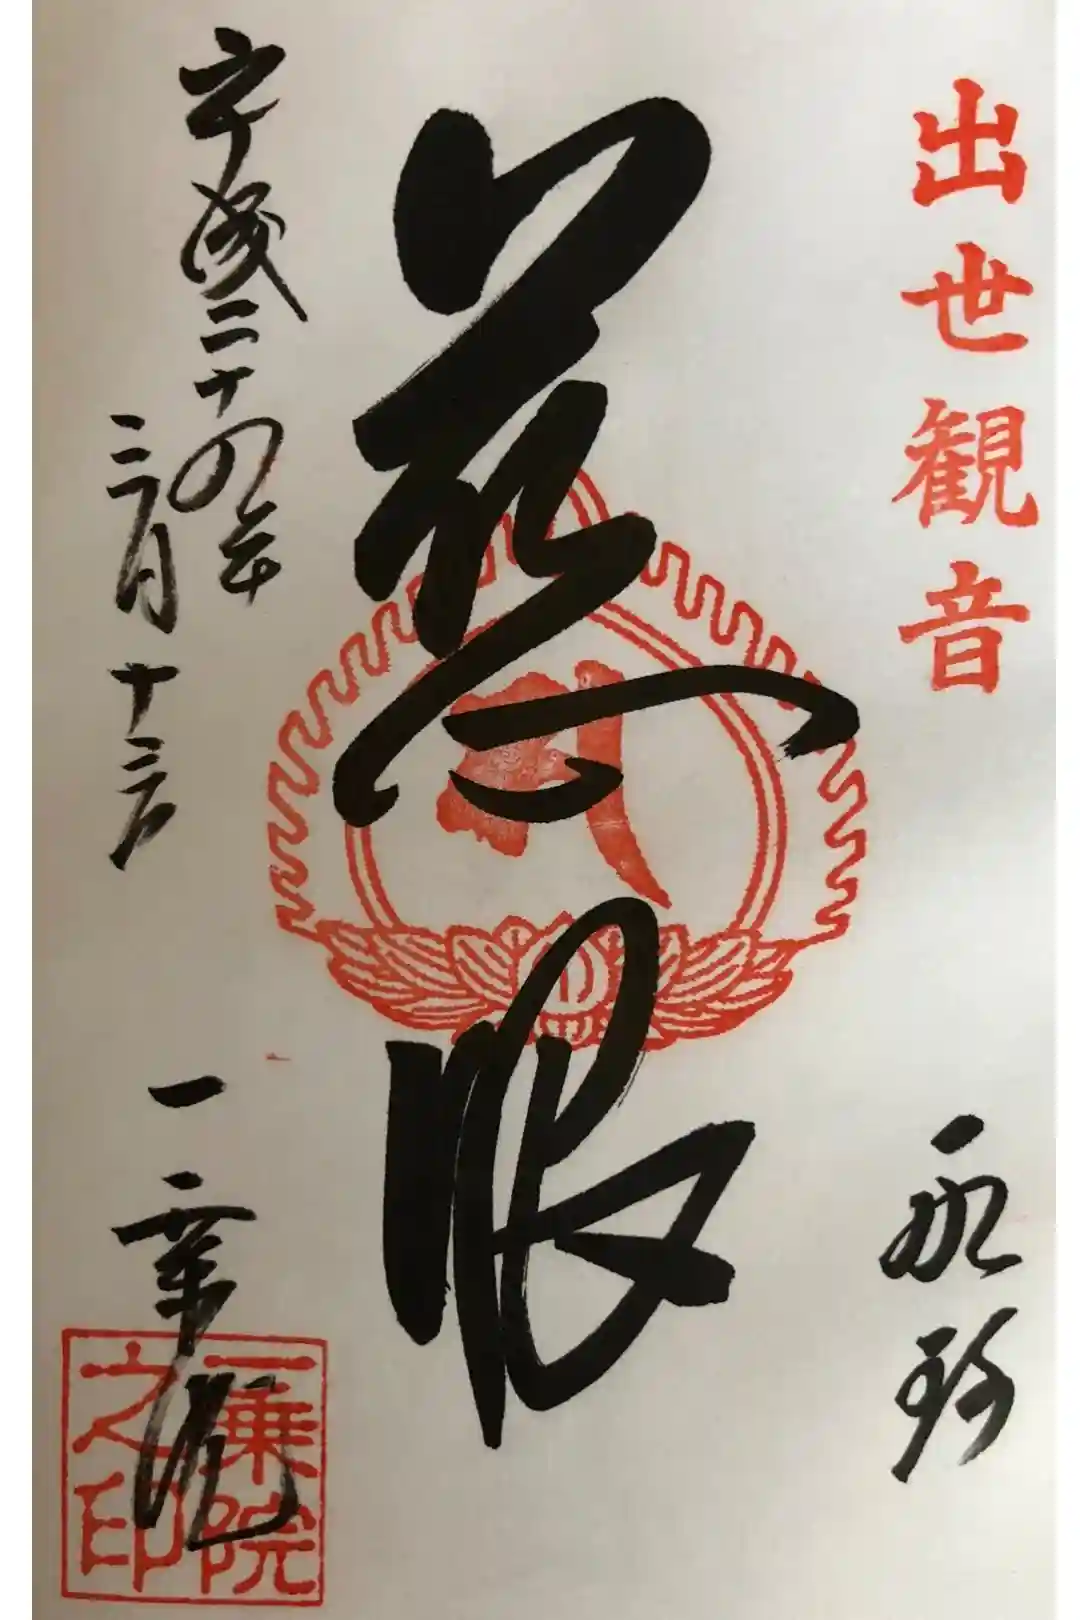 出世観音
慈眼
平成二十四年
三月十三日
一乗院
一乗院之印